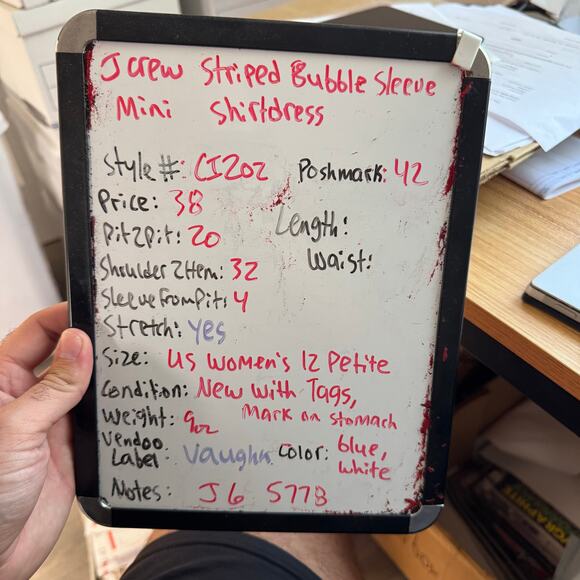 J crew Striped Bubble Sleeve
Mini Shirtdress
Style #: CI202 Poshmark: 42
Price: 38
Pit2pit: 20
Length:
Waist:
Shoulder2Hem: 32
SleeveFromPit: 4
Stretch: yes
Size: US Women's 12 Petite
Condition: New With Tags,
Mark on stomach
Weight: 9oz
Vendoo
Label Vaughn Color: blue,
white
Notes: J6 5778